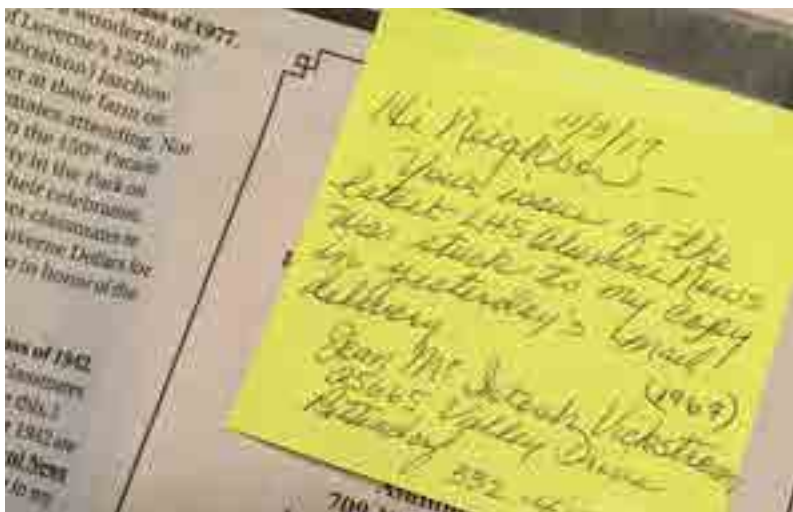 ass of 1977.
a wonderful 40th
of Luverne's 150th
abrielson) Jarchow
er at their farm on
smates attending. Not
o the 150th Parade
ty in the Park on
heir celebration.
classmates
uverne Dollars for
o in honor of the
ass of 1942
classmates
this. I
1942 are
News
in my
11/3/17
Hi Neighbor —
Your issue of the
latest LHS Alumni News
was stuck to my copy
in yesterday's mail
delivery.
(1969)
Jean Mc Vickstrom
25665 Valley Drive
332
709